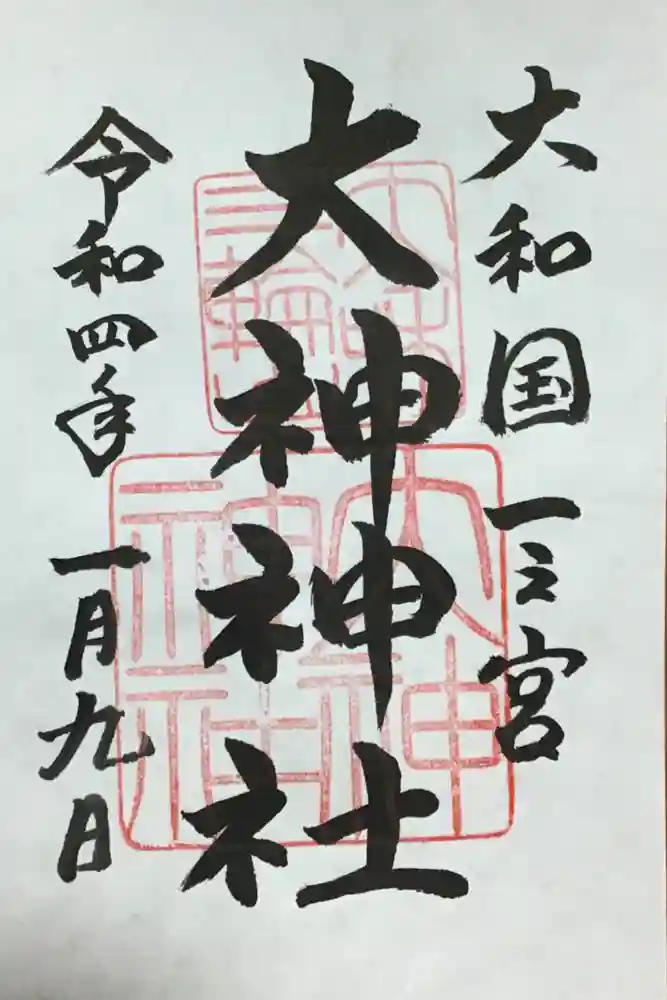 大和国一之宮
大神神社
令和四年一月九日
大神
神社